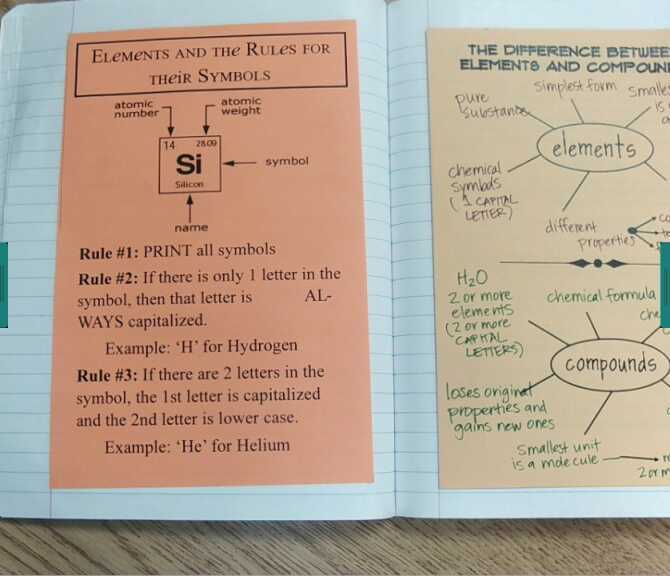 Elements and the Rules for
their Symbols
atomic
number
atomic
weight
14 28.09
Si
Silicon
symbol
name
Rule #1: PRINT all symbols
Rule #2: If there is only 1 letter in the
symbol, then that letter is AL-
WAYS capitalized.
Example: ‘H’ for Hydrogen
Rule #3: If there are 2 letters in the
symbol, the 1st letter is capitalized
and the 2nd letter is lower case.
Example: ‘He’ for Helium
THE DIFFERENCE
ELEMENTS AND
pure
substance
simplest form
is
elements
chemical
symbols
(1 CAPITAL
LETTER)
different
properties
H₂O
2 or more
elements
(2 or more
CAPITAL
LETTERS)
chemical formula
compounds
loses original
properties and
gains new ones
Smallest unit
is a molecule
2 or